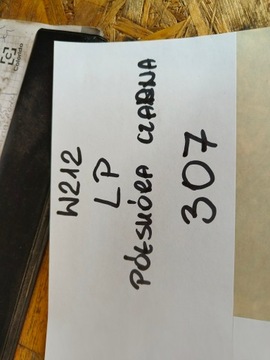 W212
LP
PÓŁSKÓRA CZARNA
307